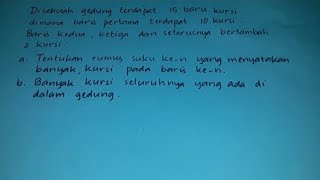 Disebuah gedung terdapat 15 baris kursi
dimana baris pertama terdapat 10 kursi.
Baris kedua, ketiga dan seterusnya bertambah
2 kursi
a. Tentukan rumus suku ke-n yang menyatakan
banyak kursi pada baris ke-n.
b. Banyak kursi seluruhnya yang ada di
dalam gedung.